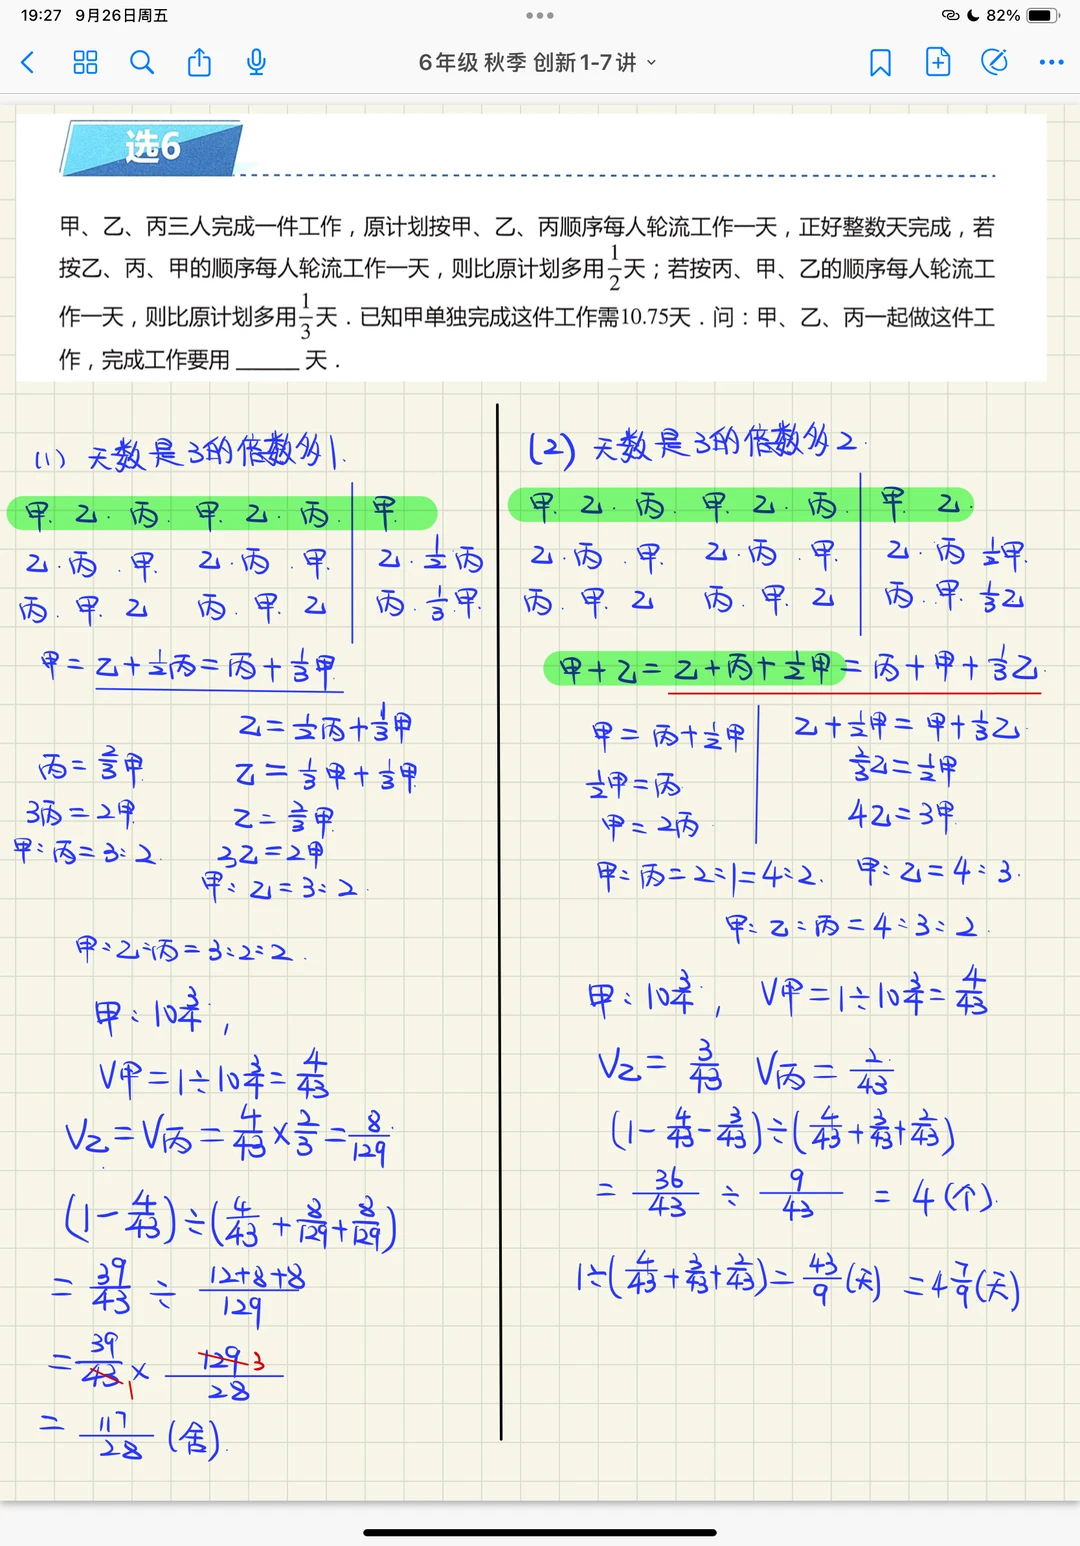 19:27 9月26日周五
82%
6年级 秋季 创新1-7讲
选6
甲、乙、丙三人完成一件工作，原计划按甲、乙、丙顺序每人轮流工作一天，正好整数天完成，若
按乙、丙、甲的顺序每人轮流工作一天，则比原计划多用1/2天；若按丙、甲、乙的顺序每人轮流工
作一天，则比原计划多用1/3天．已知甲单独完成这件工作需10.75天．问：甲、乙、丙一起做这件工
作，完成工作要用 ______ 天．
(1) 天数是3的倍数多1.
甲. 乙. 丙. 甲. 乙. 丙. 甲.
乙. 丙. 甲. 乙. 丙. 甲. 乙. 1/2丙
丙. 甲. 乙 丙. 甲. 乙 丙. 1/3甲.
甲=乙+1/2丙=丙+1/3甲
乙=1/2丙+1/3甲
丙=2/3甲 乙=1/3甲+1/3甲
3丙=2甲 乙=2/3甲
甲:丙=3:2. 3乙=2甲
甲:乙=3:2.
甲:乙:丙=3:2:2.
甲:10 3/4,
V甲=1÷10 3/4=4/43
V乙=V丙=4/43×2/3=8/129
(1-4/43)÷(4/43+8/129+8/129)
=39/43÷(12+8+8)/129
=39/43×129/28 1 3
=117/28 (舍).
(2) 天数是3的倍数多2.
甲. 乙. 丙. 甲. 乙. 丙. 甲 乙.
乙. 丙. 甲. 乙. 丙. 甲. 乙. 丙 1/2甲.
丙. 甲. 乙 丙. 甲. 乙 丙. 甲. 1/3乙
甲+乙=乙+丙+1/2甲=丙+甲+1/3乙.
甲=丙+1/2甲 乙+1/2甲=甲+1/3乙
1/2甲=丙 2/3乙=1/2甲
甲=2丙 4乙=3甲
甲:丙=2:1=4:2. 甲:乙=4:3.
甲:乙:丙=4:3:2.
甲:10 3/4, V甲=1÷10 3/4=4/43
V乙=3/43 V丙=2/43
(1-4/43-3/43)÷(4/43+3/43+2/43)
=36/43÷9/43=4(个).
1÷(4/43+3/43+2/43)=43/9(天)=4 7/9(天)